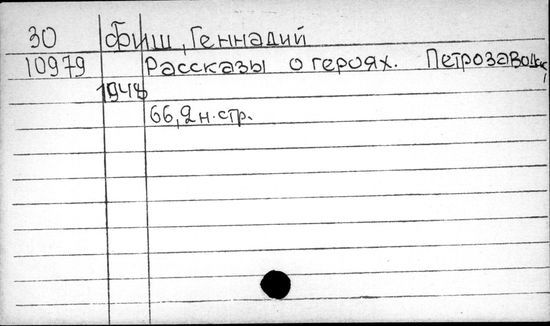 30 Фиш, Геннадий
10979 Рассказы о героях. Петрозаводск,
1948
66, 2 н. стр.